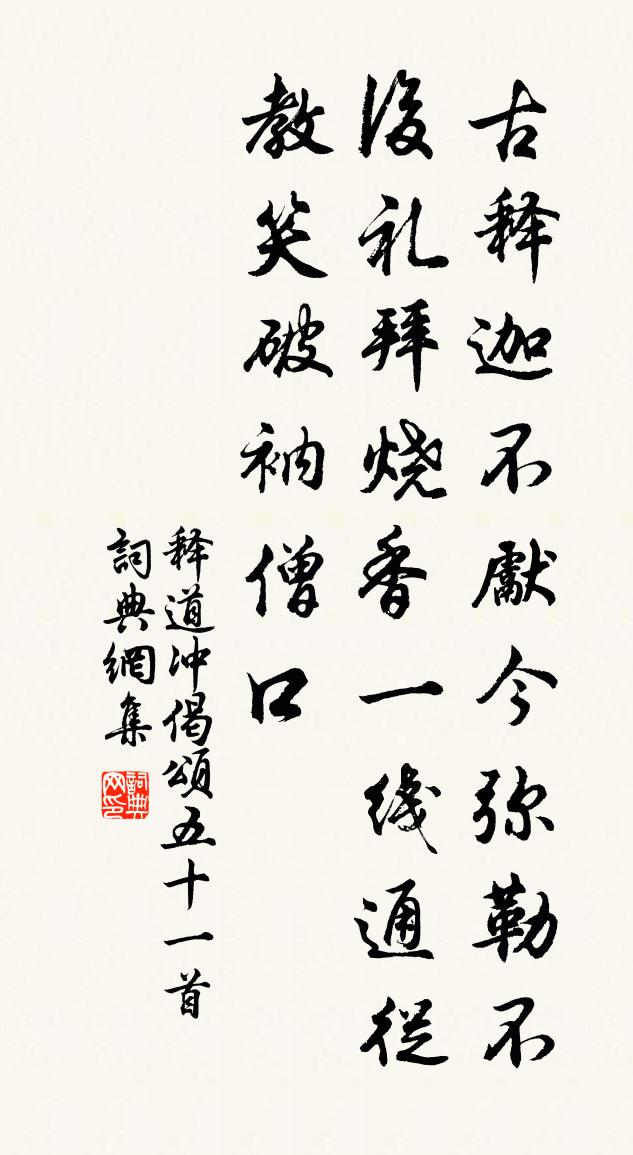 古释迦不献今弥勒不
后礼拜烧香一线通从
教笑破衲僧口
释道冲偈颂五十一首
詞典網集
詞典网印